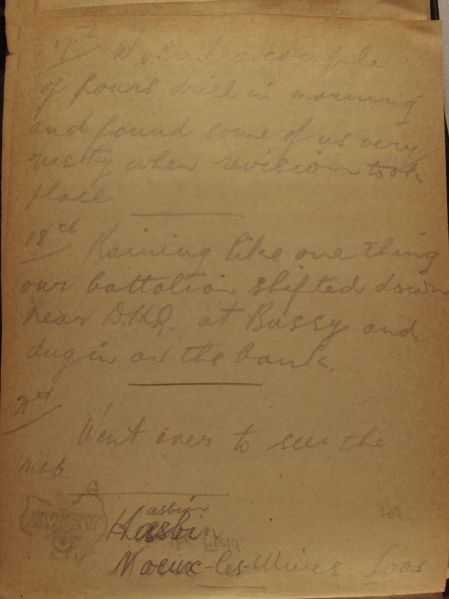 17th We had a couple
of hours drill in morning
and found some of us very
rusty when revision took
place
18th Raining like one thing
our battalion shifted down
near D.H.Q. at Bussy and
dug in on the bank.
Went over to see the
asbin
Hasbin
Noeux-les-Mines. Loos